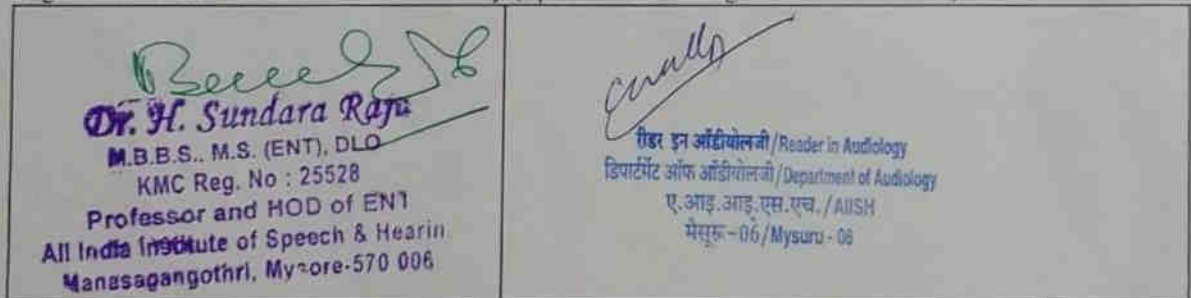 Dr. H. Sundara Raju
M.B.B.S., M.S. (ENT), DLO
KMC Reg. No : 25528
Professor and HOD of ENT
All India Institute of Speech & Hearin
Manasagangothri, Mysore-570 006
रीडर इन ऑडीयोलजी/Reader in Audiology
डिपार्टमेंट ऑफ ऑडीयोलजी/Department of Audiology
ए.आइ.आइ.एस.एच./AIISH
मैसूरू-06/Mysuru - 06